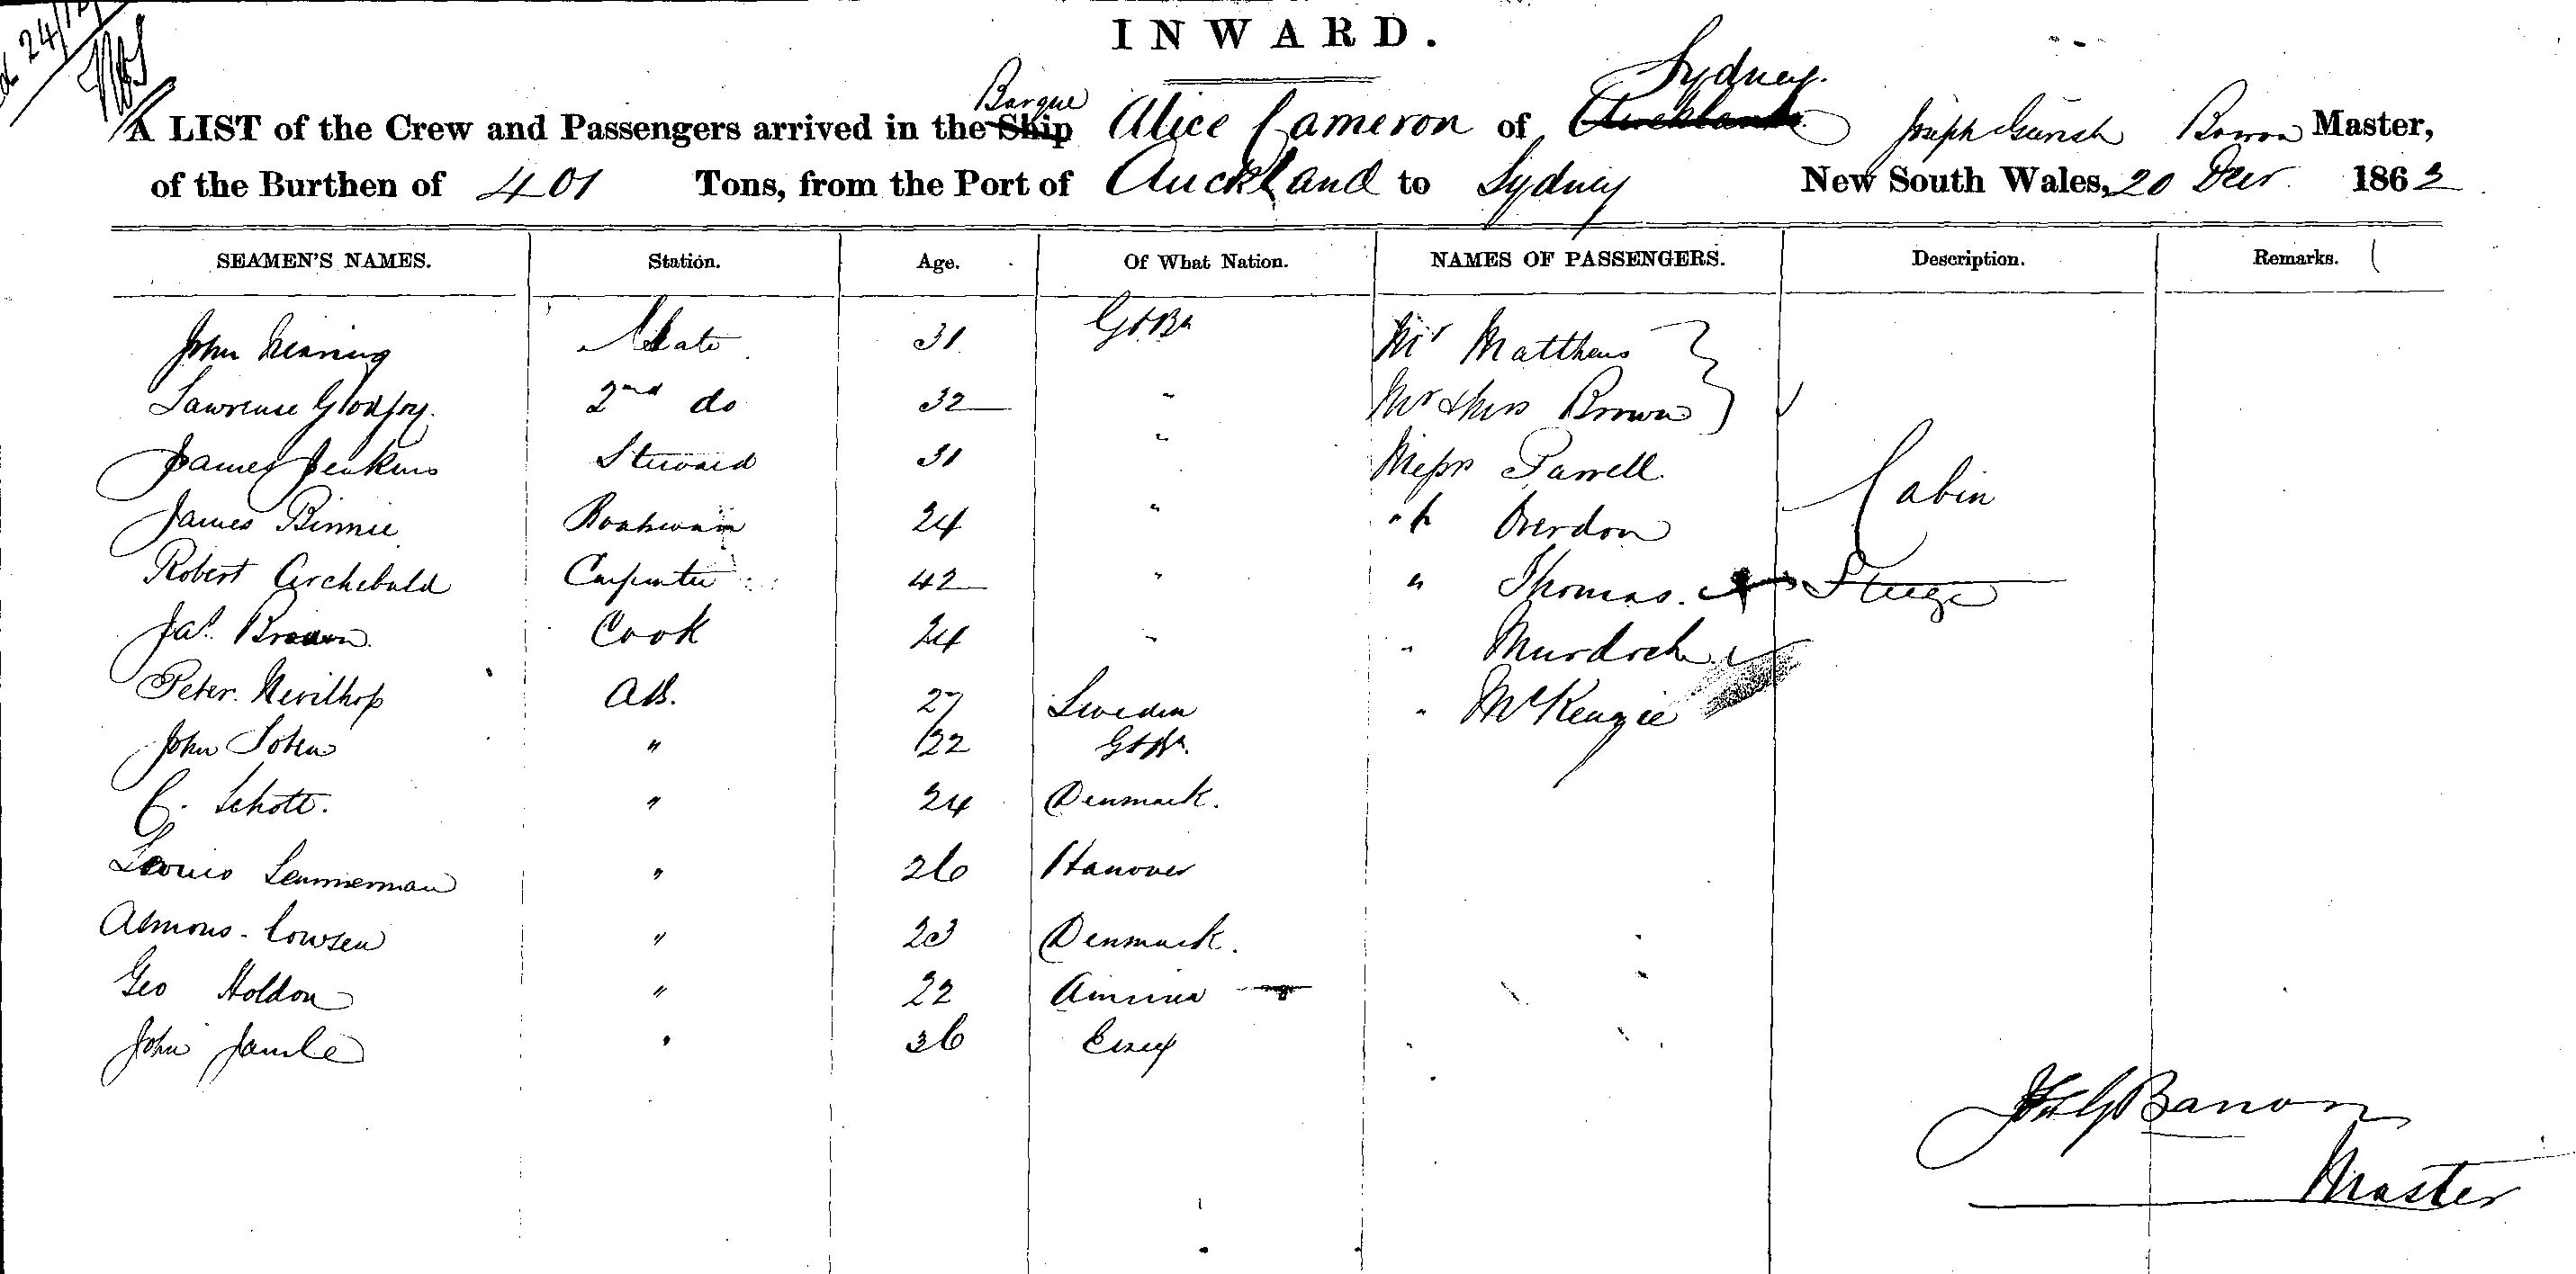 INWARD.
A LIST of the Crew and Passengers arrived in the Ship Barque Alice Cameron of Auckland Sydney Joseph Master,
of the Burthen of 401 Tons, from the Port of Auckland to Sydney New South Wales, 20 Decr 1863
SEAMEN'S NAMES. Station. Age. Of What Nation. NAMES OF PASSENGERS. Description. Remarks.
John Mate 31 Gt Bn Mr Matthews
Lawrence Godfrey 2nd do 32 " Mr & Mrs Brown
James Jenkins Steward 31 " Messrs Farrell Cabin
James Binnie Boatswain 24 " " Overdon
Robert Archebald Carpenter 42 " " Thomas. Steerage
Jas. Brown Cook 24 " " Murdoch
Peter AB. 27 Sweden " McKenzie
John " 22 Gt Bn.
C. Schott. " 24 Denmark.
Louis " 26 Hanover
" 23 Denmark.
Geo Holdon " 22 America
John " 36
Jos G Barron
Master